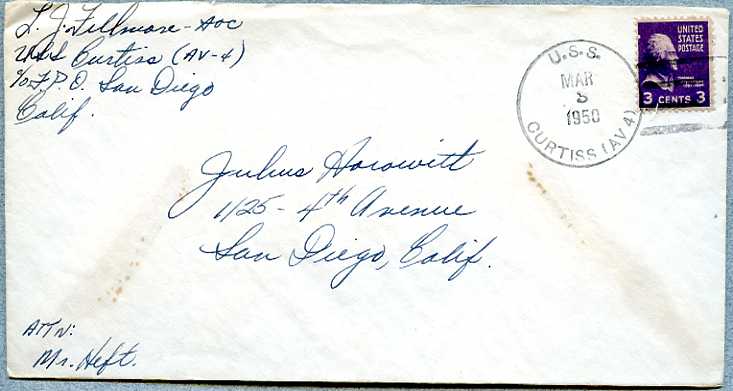 L. J. Fillmore - AOC
USS Curtiss (AV-4)
℅ F.P.O. San Diego
Calif.
UNITED
STATES
POSTAGE
3 CENTS 3
U.S.S.
MAR
3
1950
CURTISS (AV4)
Julius Horowitt
1125 - 4th Avenue
San Diego, Calif.
ATTN:
Mr. Heft.